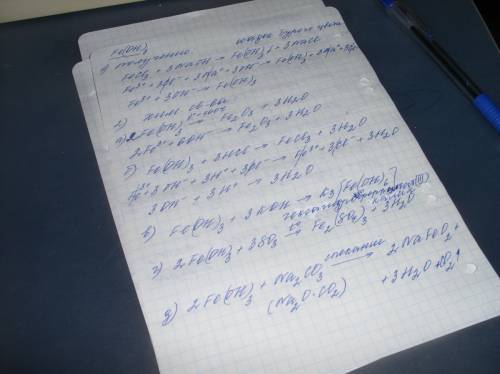 Fe(OH)₃
1) получение. осадок бурого цвета
FeCl₃ + 3NaOH → Fe(OH)₃↓ + 3NaCl
Fe³⁺ + 3Cl⁻ + 3Na⁺ + 3OH⁻ → Fe(OH)₃ + 3Na⁺ + 3Cl⁻
Fe³⁺ + 3OH⁻ → Fe(OH)₃
2) хим св-ва
а) 2Fe(OH)₃ → Fe₂O₃ + 3H₂O
2Fe³⁺ + 6OH⁻ → Fe₂O₃ + 3H₂O
б) Fe(OH)₃ + 3HCl → FeCl₃ + 3H₂O
Fe³⁺ + 3OH⁻ + 3H⁺ + 3Cl⁻ → Fe³⁺ + 3Cl⁻ + 3H₂O
3OH⁻ + 3H⁺ → 3H₂O
в) Fe(OH)₃ + 3KOH → K₃[Fe(OH)₆]
(III) калия
г) 2Fe(OH)₃ + 3SO₃ → Fe₂(SO₄)₃ + 3H₂O
д) 2Fe(OH)₃ + Na₂CO₃ сплавление → 2NaFeO₂ +
(Na₂O·CO₂) + 3H₂O + CO₂↑